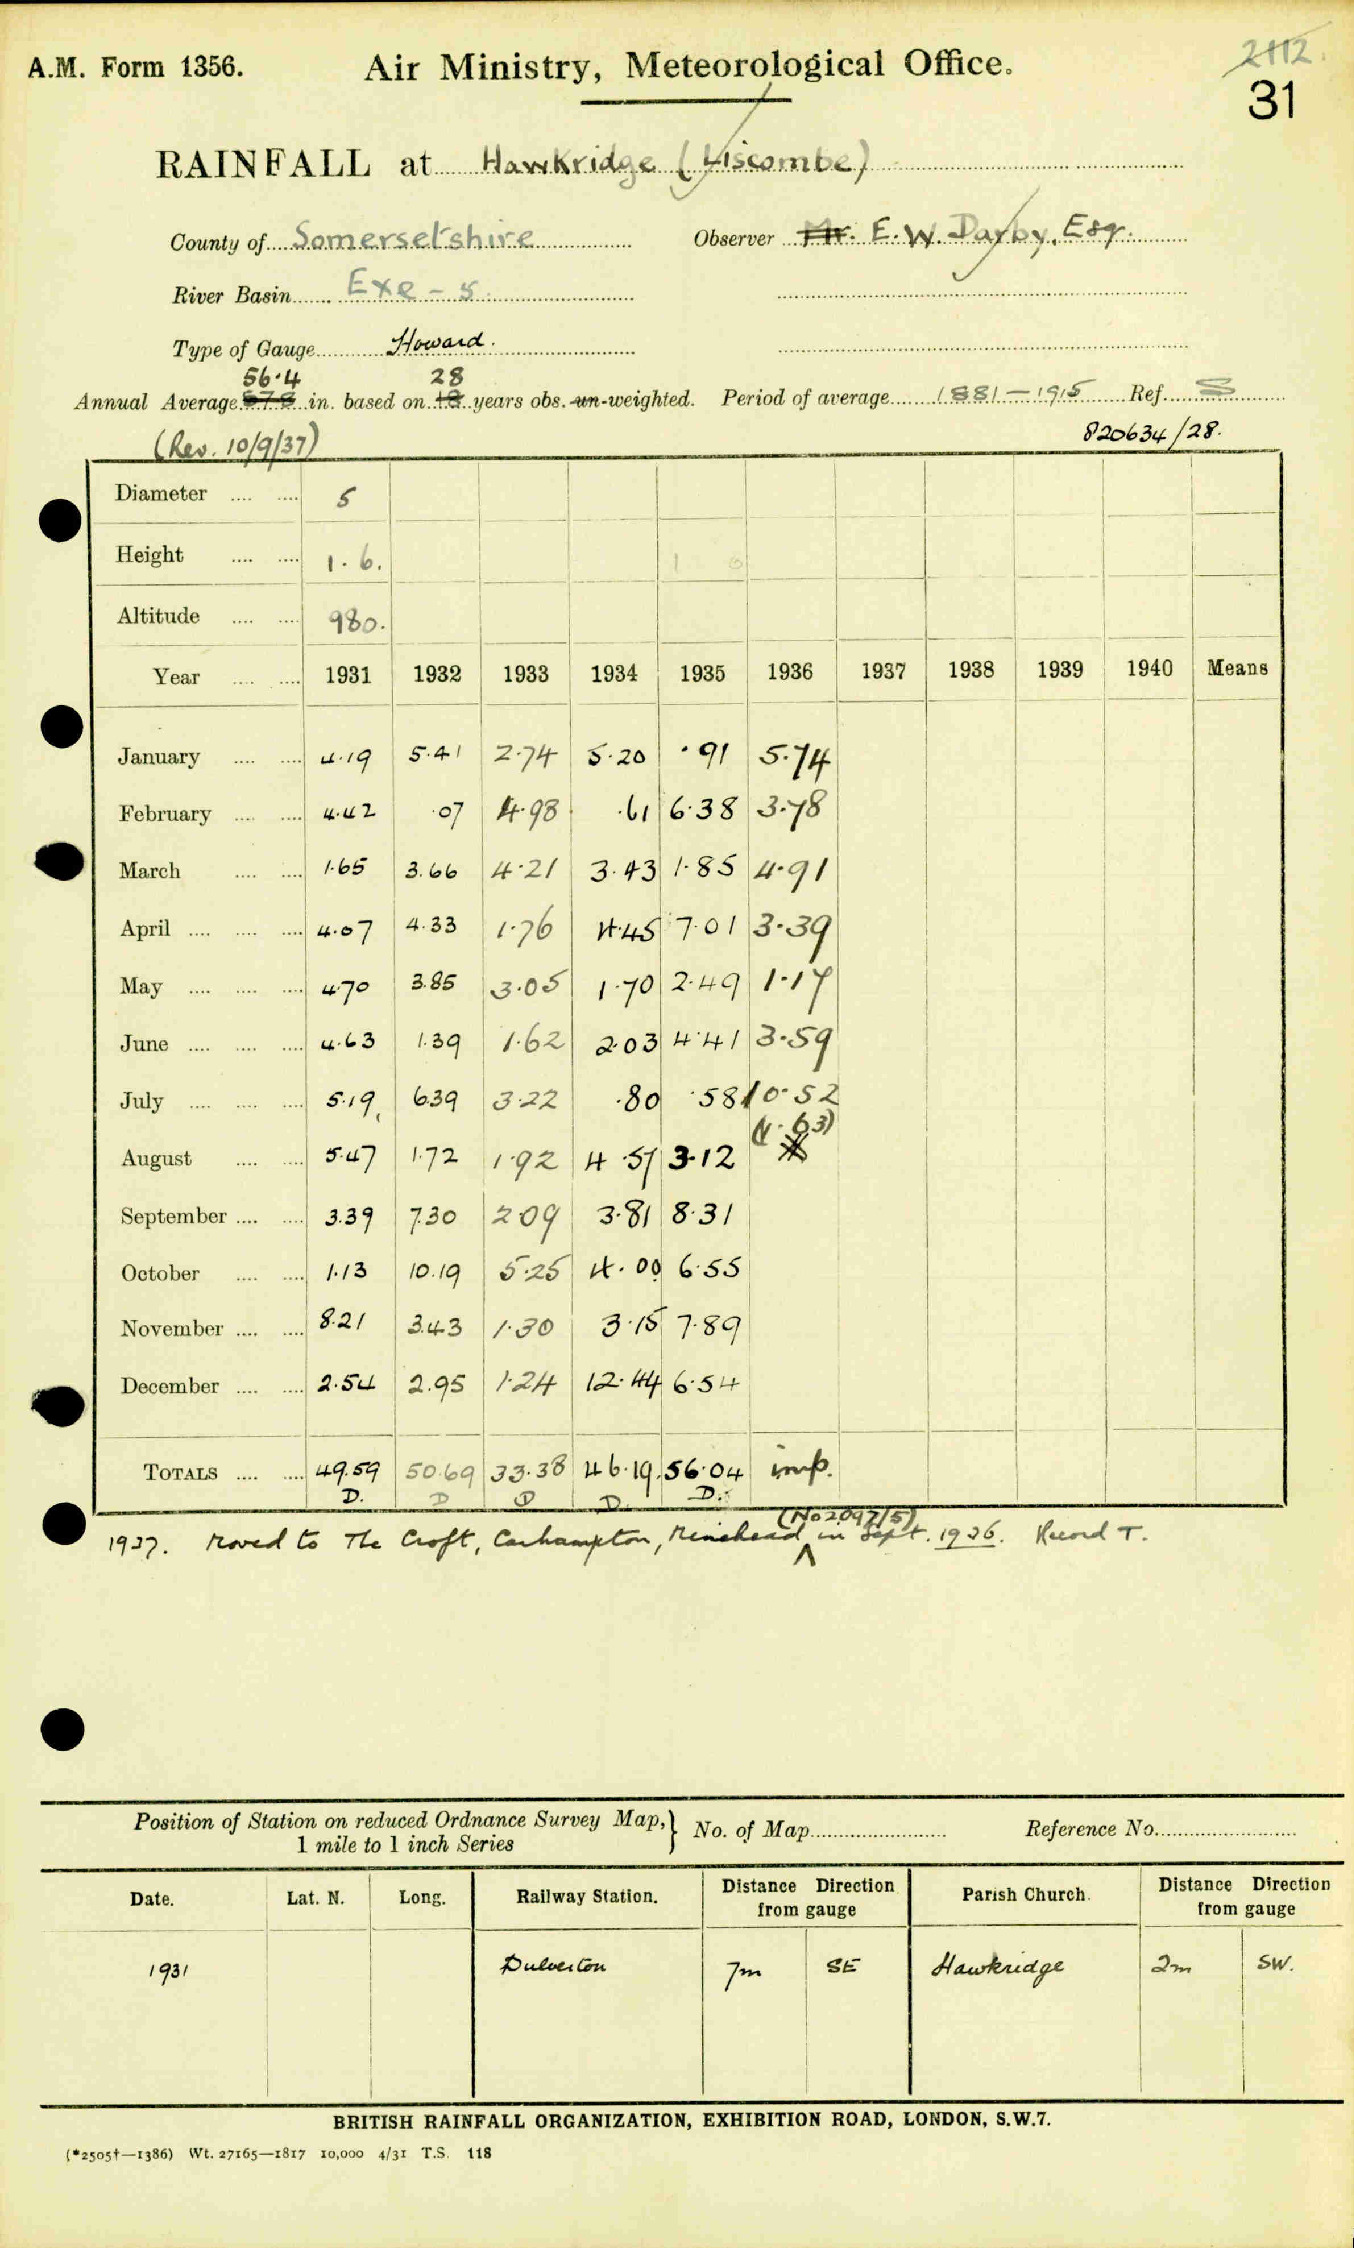 A.M. Form 1356. Air Ministry, Meteorological Office. 2112.
31
RAINFALL at Hawkridge (Liscombe)
County of Somersetshire Observer Mr. E. W. Darby, Esq.
River Basin Exe - 5
Type of Gauge Howard.
56.4 28
Annual Average 57.8 in. based on 18 years obs. un-weighted. Period of average 1881-1915 Ref. S
(Rev. 10/9/37) 820634/28.
Diameter .... .... 5
Height .... .... 1.6.
Altitude .... .... 980.
Year .... .... 1931 1932 1933 1934 1935 1936 1937 1938 1939 1940 Means
January .... .... 4.19 5.41 2.74 5.20 .91 5.74
February .... .... 4.42 .07 4.98 .61 6.38 3.78
March .... .... 1.65 3.66 4.21 3.43 1.85 4.91
April .... .... .... 4.07 4.33 1.76 4.45 7.01 3.39
May .... .... .... 4.70 3.85 3.05 1.70 2.49 1.17
June .... .... .... 4.63 1.39 1.62 2.03 4.41 3.59
July .... .... .... 5.19 6.39 3.22 .80 .58 10.52
August .... .... 5.47 1.72 1.92 4.57 3.12 (1.63)
September .... .... 3.39 7.30 2.09 3.81 8.31
October .... .... 1.13 10.19 5.25 4.00 6.55
November .... .... 8.21 3.43 1.30 3.15 7.89
December .... .... 2.54 2.95 1.24 12.44 6.54
TOTALS .... .... 49.59 50.69 33.38 46.19 56.04 imp.
D. D D D. D.
(No 2097/5)
1937. Moved to The Croft, Carhampton, Minehead in Sept. 1936. Record T.
Position of Station on reduced Ordnance Survey Map, } No. of Map Reference No.
1 mile to 1 inch Series
Date. Lat. N. Long. Railway Station. Distance Direction from gauge Parish Church. Distance Direction from gauge
1931 Dulverton 7m SE Hawkridge 2m SW.
BRITISH RAINFALL ORGANIZATION, EXHIBITION ROAD, LONDON, S.W.7.
(*2505†—1386) Wt. 27165—1817 10,000 4/31 T.S. 118